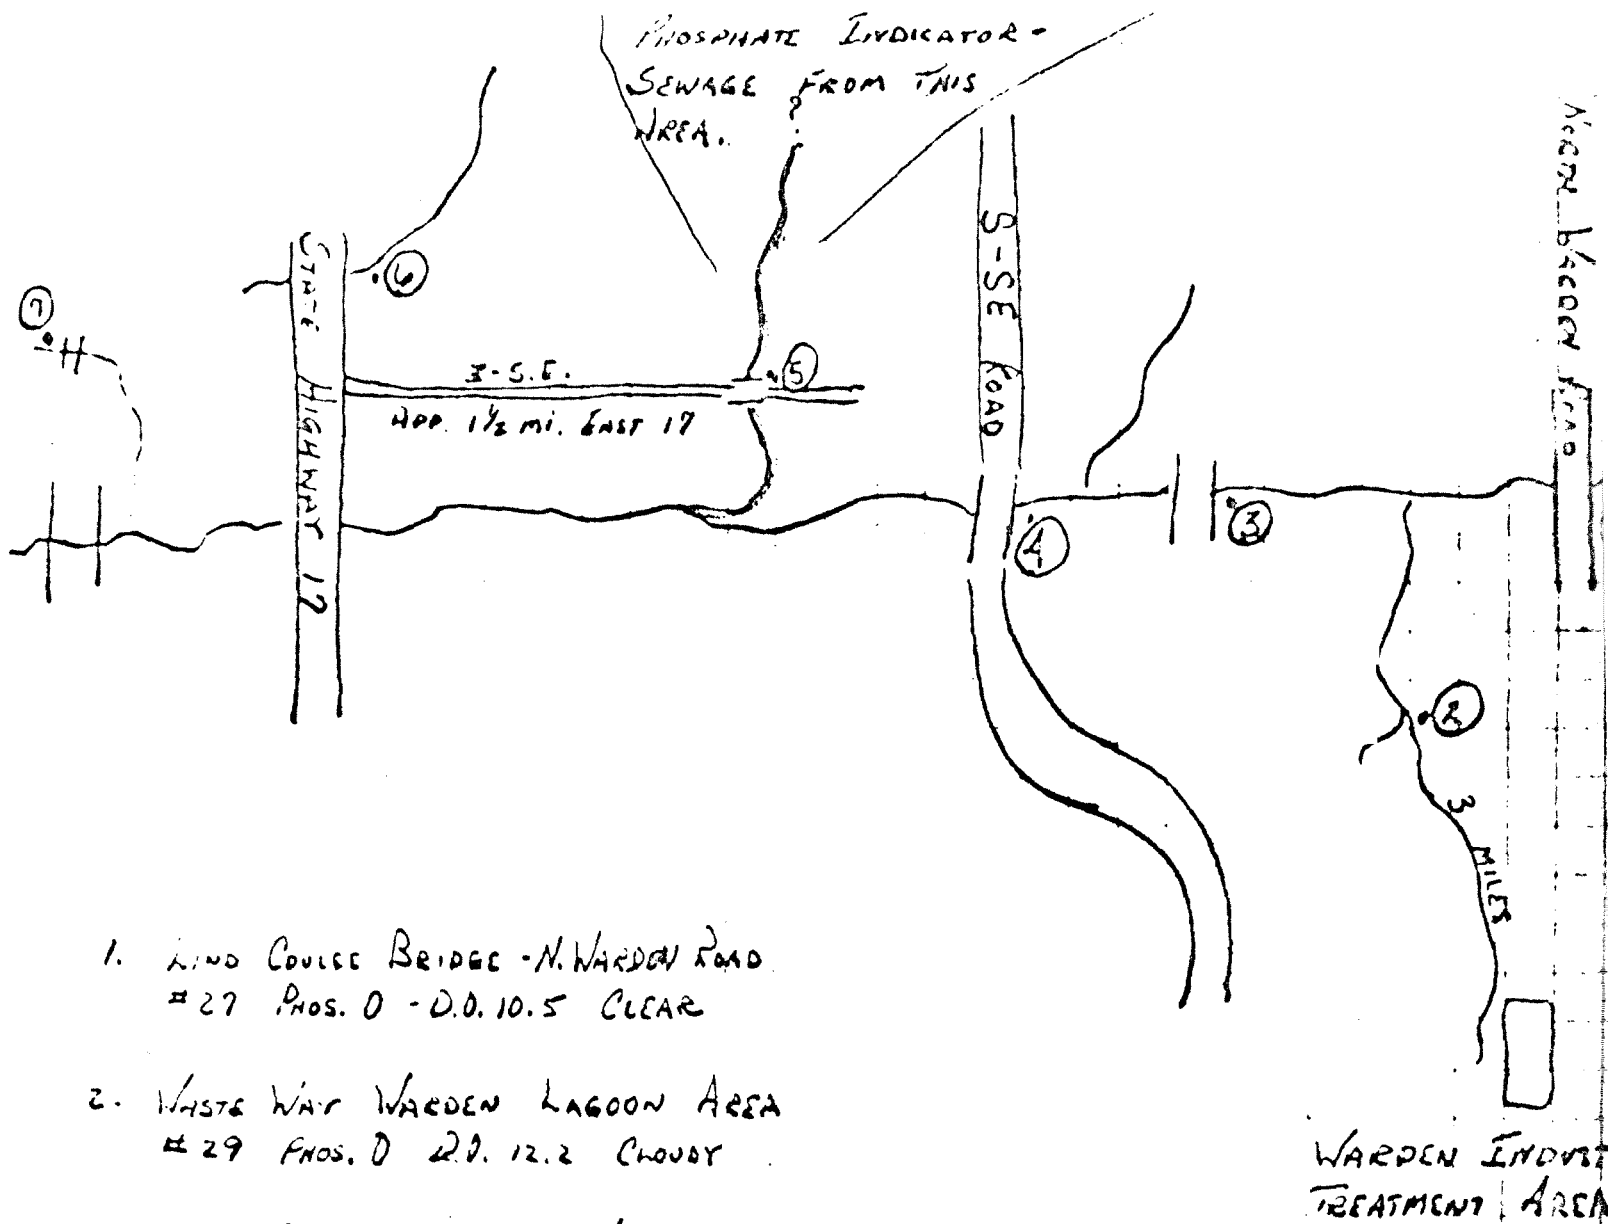 PHOSPHATE INDICATOR -
SEWAGE FROM THIS
AREA.
?
NORTH WARDEN ROAD
S-SE ROAD
STATE HIGHWAY 17
6
7
5
I-S.E.
APP. 1½ MI. EAST 17
4
3
2
3 MILES
1. LIND COULEE BRIDGE - N. WARDEN ROAD
#27 PHOS. 0 - D.O. 10.5 CLEAR
2. WASTE WAY WARDEN LAGOON AREA
#29 PHOS. 0 D.O. 12.2 CLOUDY
WARDEN INDUST
TREATMENT AREA